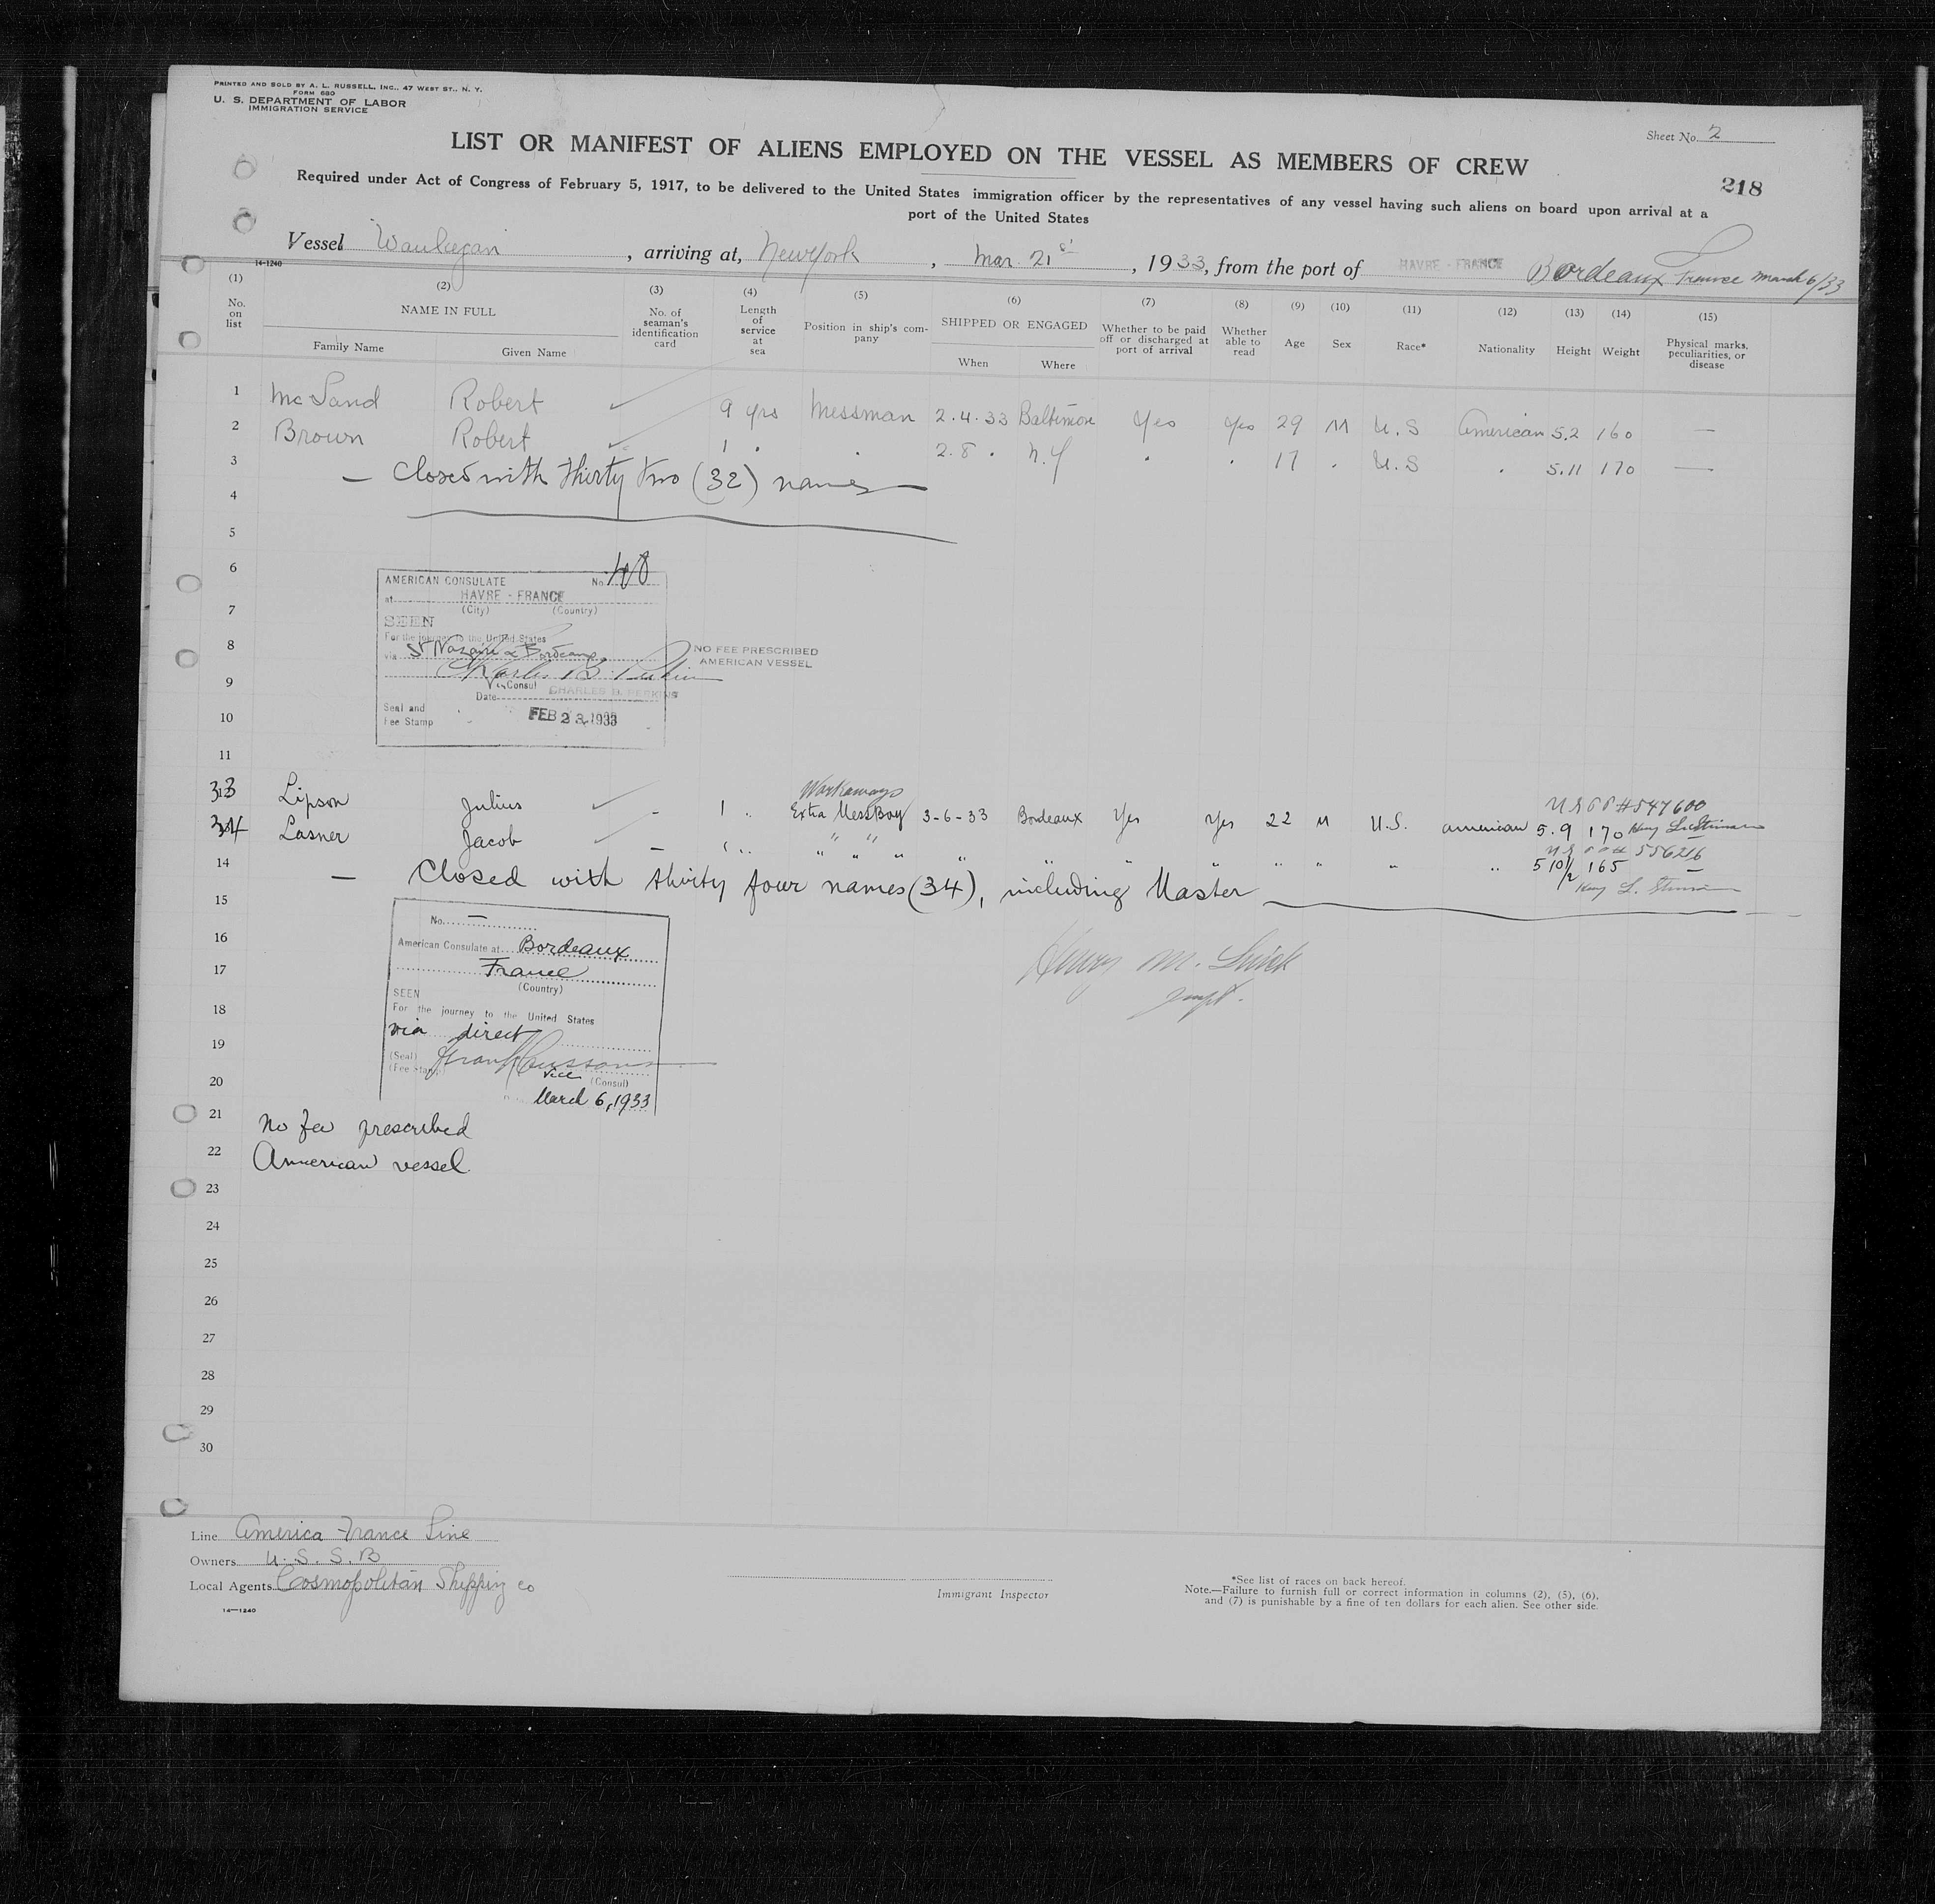 PRINTED AND SOLD BY A. L. RUSSELL, INC., 47 WEST ST., N. Y.
FORM 680
U. S. DEPARTMENT OF LABOR
IMMIGRATION SERVICE
Sheet No. 2
LIST OR MANIFEST OF ALIENS EMPLOYED ON THE VESSEL AS MEMBERS OF CREW
218
Required under Act of Congress of February 5, 1917, to be delivered to the United States immigration officer by the representatives of any vessel having such aliens on board upon arrival at a
port of the United States
Vessel Waukegan, arriving at, New York, Mar 21st, 1933, from the port of HAVRE - FRANCE Bordeaux France March 6/33
14-1240
(1) (2) (3) (4) (5) (6) (7) (8) (9) (10) (11) (12) (13) (14) (15)
No. on list NAME IN FULL Family Name Given Name No. of seaman's identification card Length of service at sea Position in ship's company SHIPPED OR ENGAGED When Where Whether to be paid off or discharged at port of arrival Whether able to read Age Sex Race* Nationality Height Weight Physical marks, peculiarities, or disease
1 McSand Robert 9 yrs Messman 2.4.33 Baltimore Yes Yes 29 M U.S American 5.2 160 —
2 Brown Robert 1 " " 2.8 " N.Y " " 17 " U.S " 5.11 170 —
3 — Closed with thirty two (32) names —
4
5
6
7
8
9
10
11
AMERICAN CONSULATE No.
at HAVRE - FRANCE
(City) (Country)
SEEN
For the journey to the United States
via St Nazaire & Bordeaux
Charles B. Perkins
Vice Consul CHARLES B. PERKINS
Date
Seal and
Fee Stamp
FEB 23 1933
NO FEE PRESCRIBED
AMERICAN VESSEL
Workaways
33 Lipson Julius – 1 " Extra Mess Boy 3-6-33 Bordeaux Yes Yes 22 M U.S. American 5.9 170
U S P P # 547600
34 Lasner Jacob – " " " " " " " " " " " " " 5 10 1/2 165 —
14 — Closed with thirty four names (34), including Master
15
16
17
18
19
20
No. —
American Consulate at Bordeaux
France
(Country)
SEEN
For the journey to the United States
via direct
(Seal)
(Fee Stamp)
Vice (Consul)
March 6, 1933
Henry M.
21 No fee prescribed
22 American vessel.
23
24
25
26
27
28
29
30
Line America France Line
Owners U. S. S. B
Local Agents Cosmopolitan Shipping Co
14—1240
Immigrant Inspector
*See list of races on back hereof.
Note.—Failure to furnish full or correct information in columns (2), (5), (6),
and (7) is punishable by a fine of ten dollars for each alien. See other side.